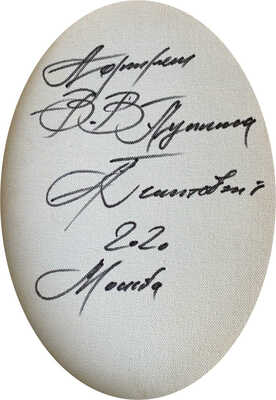 Портрет
В.В Путина
2020
Москва